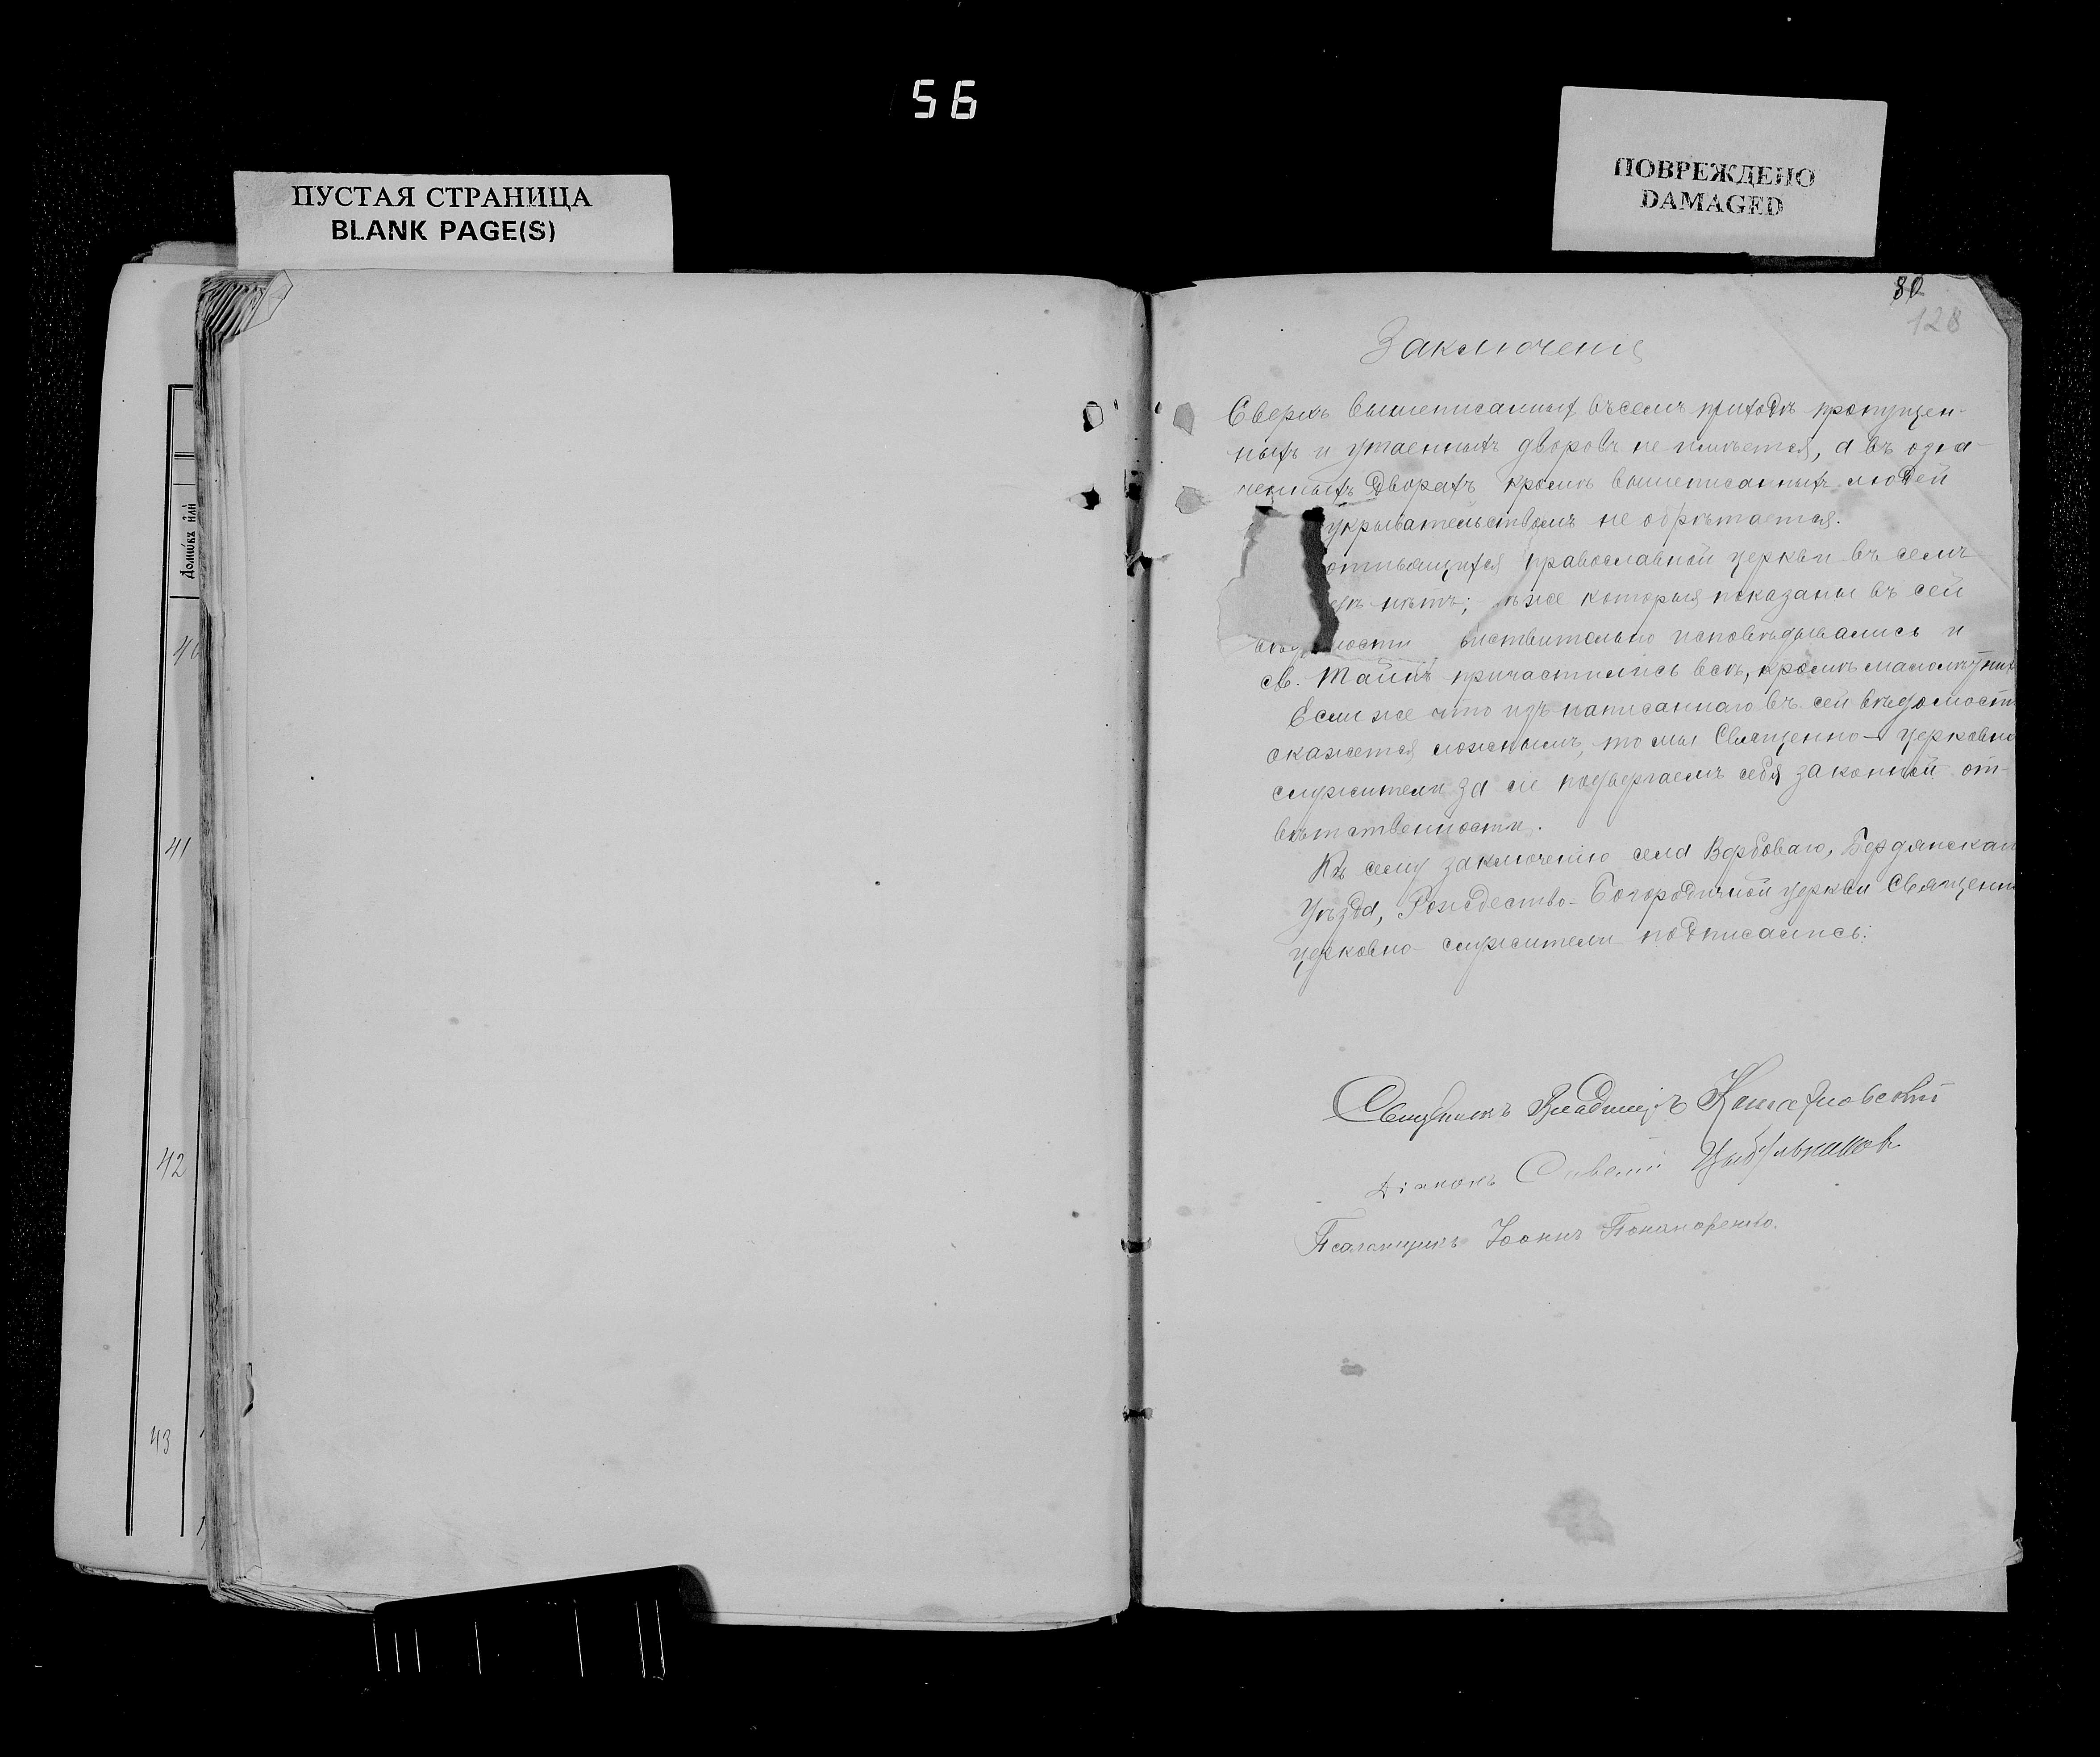 56
ПУСТАЯ СТРАНИЦА
BLANK PAGE(S)
ПОВРЕЖДЕНО
DAMAGED
80
128
Домовъ или
40
41
42
43
Заключенія
Сверхъ вышеписанныхъ въ семъ приходѣ пропущен-
ныхъ и утаенныхъ дворовъ не имѣется, а въ озна-
ченныхъ дворахъ кромѣ вышеписанныхъ людей
укрывательствомъ не обрѣтается.
православной церкви въ семъ
нѣтъ; кои показаны въ сей
исповѣдывались и
св. Таинъ причастились всѣ, кромѣ малолѣтних
Если же что изъ написаннаго въ сей вѣдомост
окажется ложнымъ, то мы Священно- церковно
служители за сіе подвергаемъ себя законной от-
вѣтственности.
Къ сему заключенію села Вербоваго, Бердянскаг
уѣзда, Рождество-Богородичной церкви Священн
церковно- служители подписались:
Священникъ Владиміръ
Діаконъ Савелій
Псаломщикъ Іоаннъ Пономаренко.